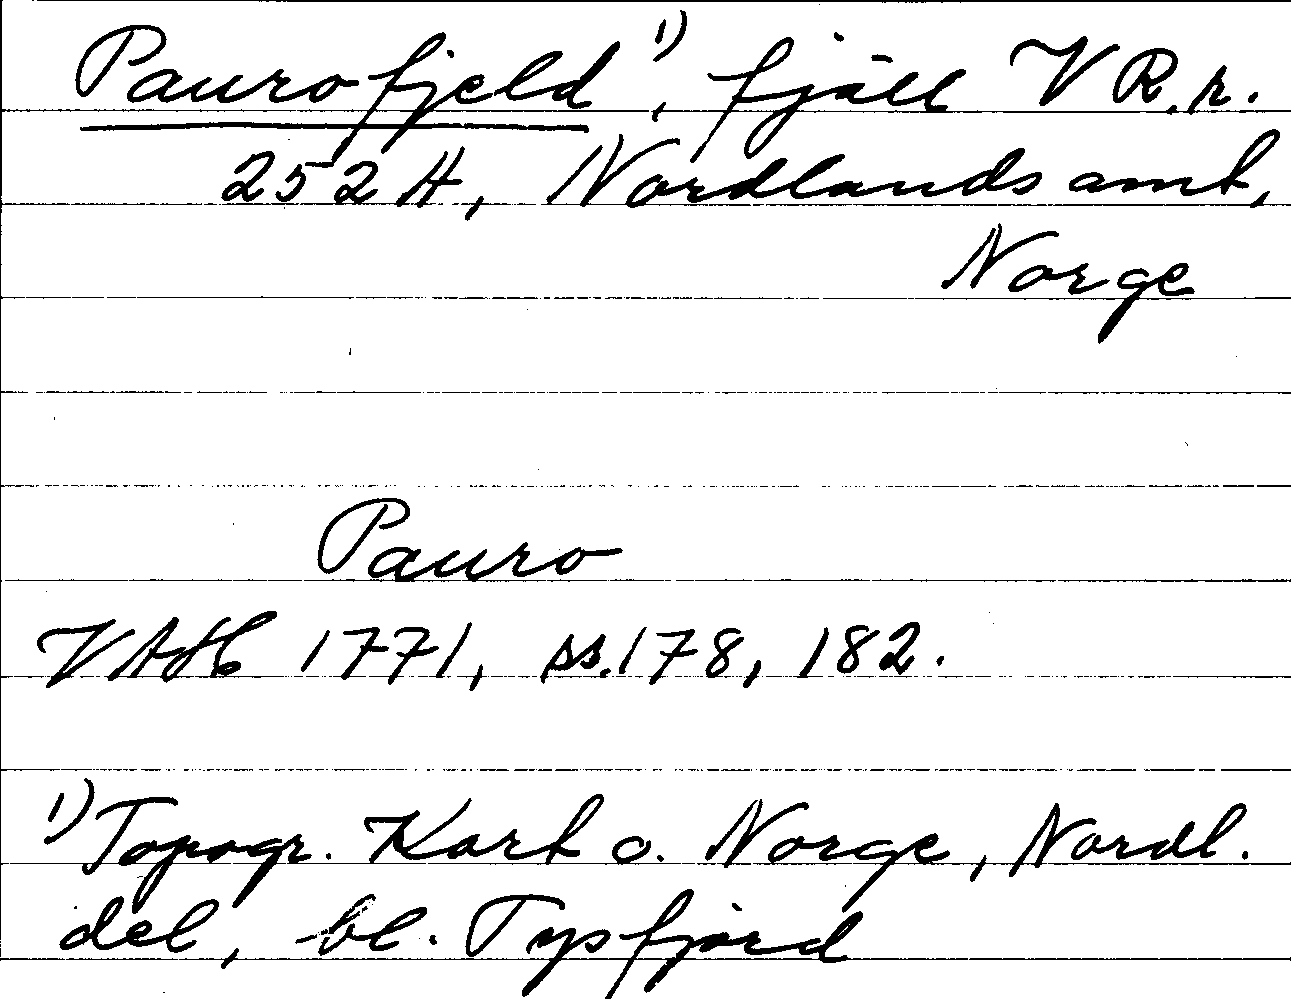 Paurofjeld ¹⁾, fjäll V R.r.
252 A, Nordlands amt,
Norge
Pauro
VAH 1771, ss. 178, 182.
¹⁾ Topogr. Kart o. Norge, Nordl.
del, bl. Tysfjord